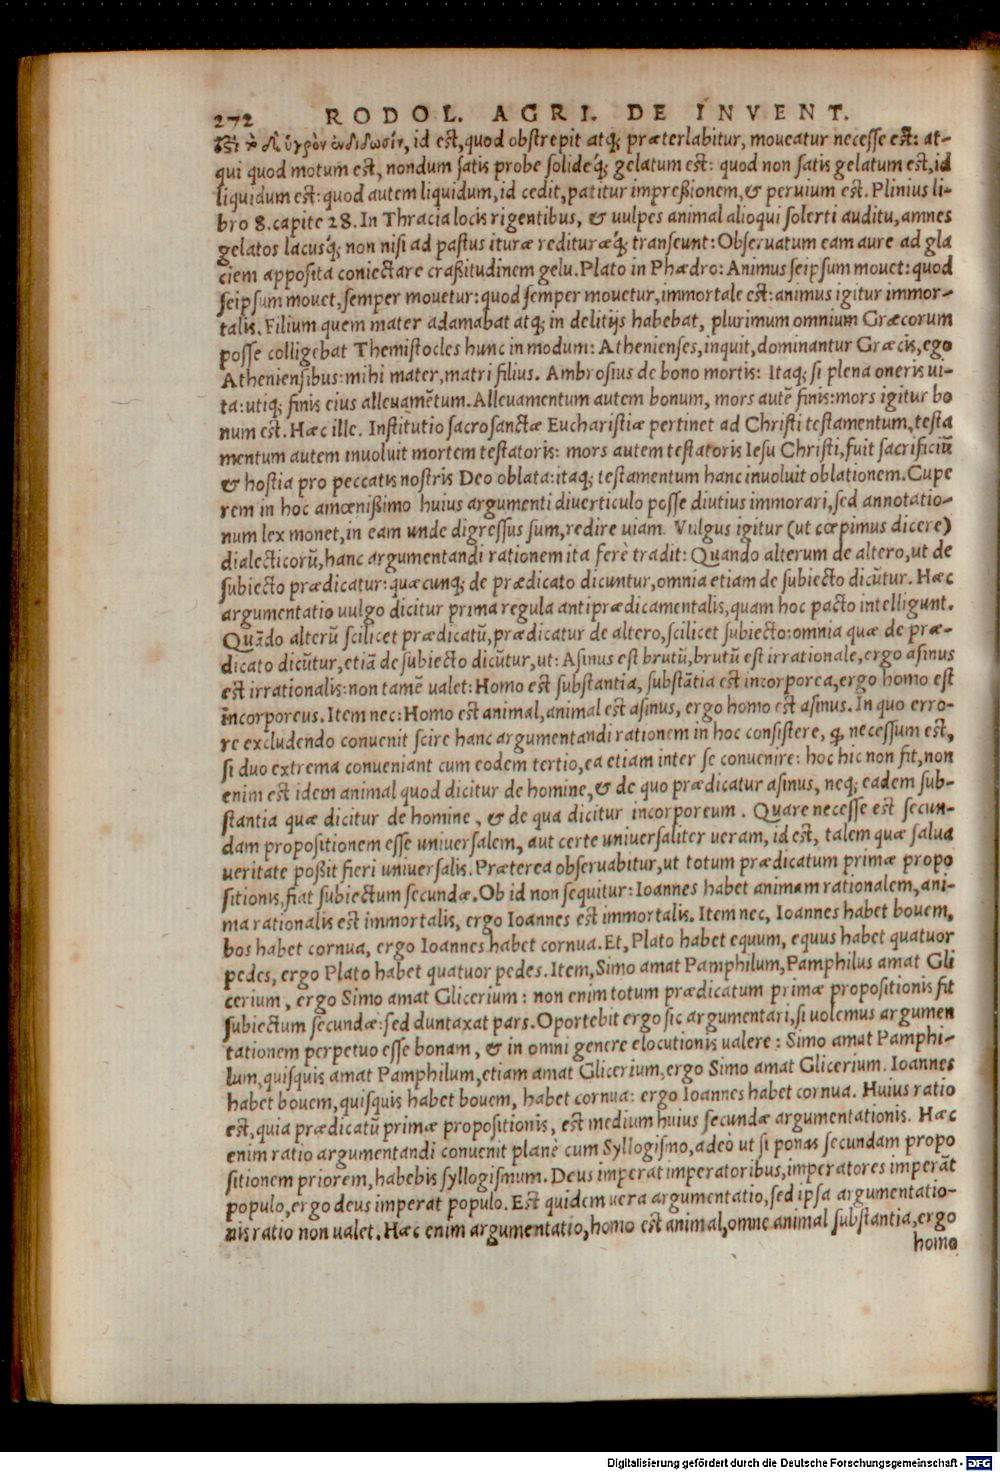 272 RODOL. AGRI. DE INVENT.
ὑγρὸν ἐνδίδωσίν, id est, quod obstrepit atq; præterlabitur, moueatur necesse est: at-
qui quod motum est, nondum satis probe solideq́; gelatum est: quod non satis gelatum est, id
liquidum est: quod autem liquidum, id cedit, patitur impreßionem, & peruium est. Plinius li-
bro 8. capite 28. In Thracia locis rigentibus, & uulpes animal alioqui solerti auditu, amnes
gelatos lacusq́; non nisi ad pastus ituræ redituræq́; transeunt: Obseruatum eam aure ad gla
ciem apposita coniectare craßitudinem gelu. Plato in Phædro: Animus seipsum mouet: quod
seipsum mouet, semper mouetur: quod semper mouetur, immortale est: animus igitur immor-
talis. Filium quem mater adamabat atq; in delitijs habebat, plurimum omnium Græcorum
posse colligebat Themistocles hunc in modum: Athenienses, inquit, dominantur Græcis, ego
Atheniensibus: mihi mater, matri filius. Ambrosius de bono mortis: Itaq; si plena oneris ui-
ta: utiq; finis eius alleuamētum. Alleuamentum autem bonum, mors autē finis: mors igitur bo
num est. Hæc ille. Institutio sacrosanctæ Eucharistiæ pertinet ad Christi testamentum, testa
mentum autem inuoluit mortem testatoris: mors autem testatoris Iesu Christi, fuit sacrificiū
& hostia pro peccatis nostris Deo oblata: itaq; testamentum hanc inuoluit oblationem. Cupe
rem in hoc amœnißimo huius argumenti diuerticulo posse diutius immorari, sed annotatio-
num lex monet, in eam unde digressus sum, redire uiam. Vulgus igitur (ut cœpimus dicere)
dialecticorū, hanc argumentandi rationem ita ferè tradit: Quando alterum de altero, ut de
subiecto prædicatur: quæcunq; de prædicato dicuntur, omnia etiam de subiecto dicūtur. Hæc
argumentatio uulgo dicitur prima regula antiprædicamentalis, quam hoc pacto intelligunt.
Quādo alterū scilicet prædicatū, prædicatur de altero, scilicet subiecto: omnia quæ de præ-
dicato dicūtur, etiā de subiecto dicūtur, ut: Asinus est brutū, brutū est irrationale, ergo asinus
est irrationalis: non tamē ualet: Homo est substantia, substātia est incorporea, ergo homo est
incorporeus. Item nec: Homo est animal, animal est asinus, ergo homo est asinus. In quo erro-
re excludendo conuenit scire hanc argumentandi rationem in hoc consistere, q̨ necessum est,
si duo extrema conueniant cum eodem tertio, ea etiam inter se conuenire: hoc hic non fit, non
enim est idem animal quod dicitur de homine, & de quo prædicatur asinus, neq; eadem sub-
stantia quæ dicitur de homine, & de qua dicitur incorporeum. Quare necesse est secun-
dam propositionem esse uniuersalem, aut certe uniuersaliter ueram, id est, talem quæ salua
ueritate poßit fieri uniuersalis. Præterea obseruabitur, ut totum prædicatum primæ propo
sitionis, fiat subiectum secundæ. Ob id non sequitur: Ioannes habet animam rationalem, ani-
ma rationalis est immortalis, ergo Ioannes est immortalis. Item nec, Ioannes habet bouem,
bos habet cornua, ergo Ioannes habet cornua. Et, Plato habet equum, equus habet quatuor
pedes, ergo Plato habet quatuor pedes. Item, Simo amat Pamphilum, Pamphilus amat Gli
cerium, ergo Simo amat Glicerium: non enim totum prædicatum primæ propositionis fit
subiectum secundæ: sed duntaxat pars. Oportebit ergo sic argumentari, si uolemus argumen
tationem perpetuo esse bonam, & in omni genere elocutionis ualere: Simo amat Pamphi-
lum, quisquis amat Pamphilum, etiam amat Glicerium, ergo Simo amat Glicerium. Ioannes
habet bouem, quisquis habet bouem, habet cornua: ergo Ioannes habet cornua. Huius ratio
est, quia prædicatū primæ propositionis, est medium huius secundæ argumentationis. Hæc
enim ratio argumentandi conuenit planè cum Syllogismo, adeò ut si ponas secundam propo
sitionem priorem, habebis syllogismum. Deus imperat imperatoribus, imperatores imperāt
populo, ergo deus imperat populo. Est quidem uera argumentatio, sed ipsa argumentatio-
nis ratio non ualet. Hæc enim argumentatio, homo est animal, omne animal substantia, ergo
homo
Digitalisierung gefördert durch die Deutsche Forschungsgemeinschaft - DFG